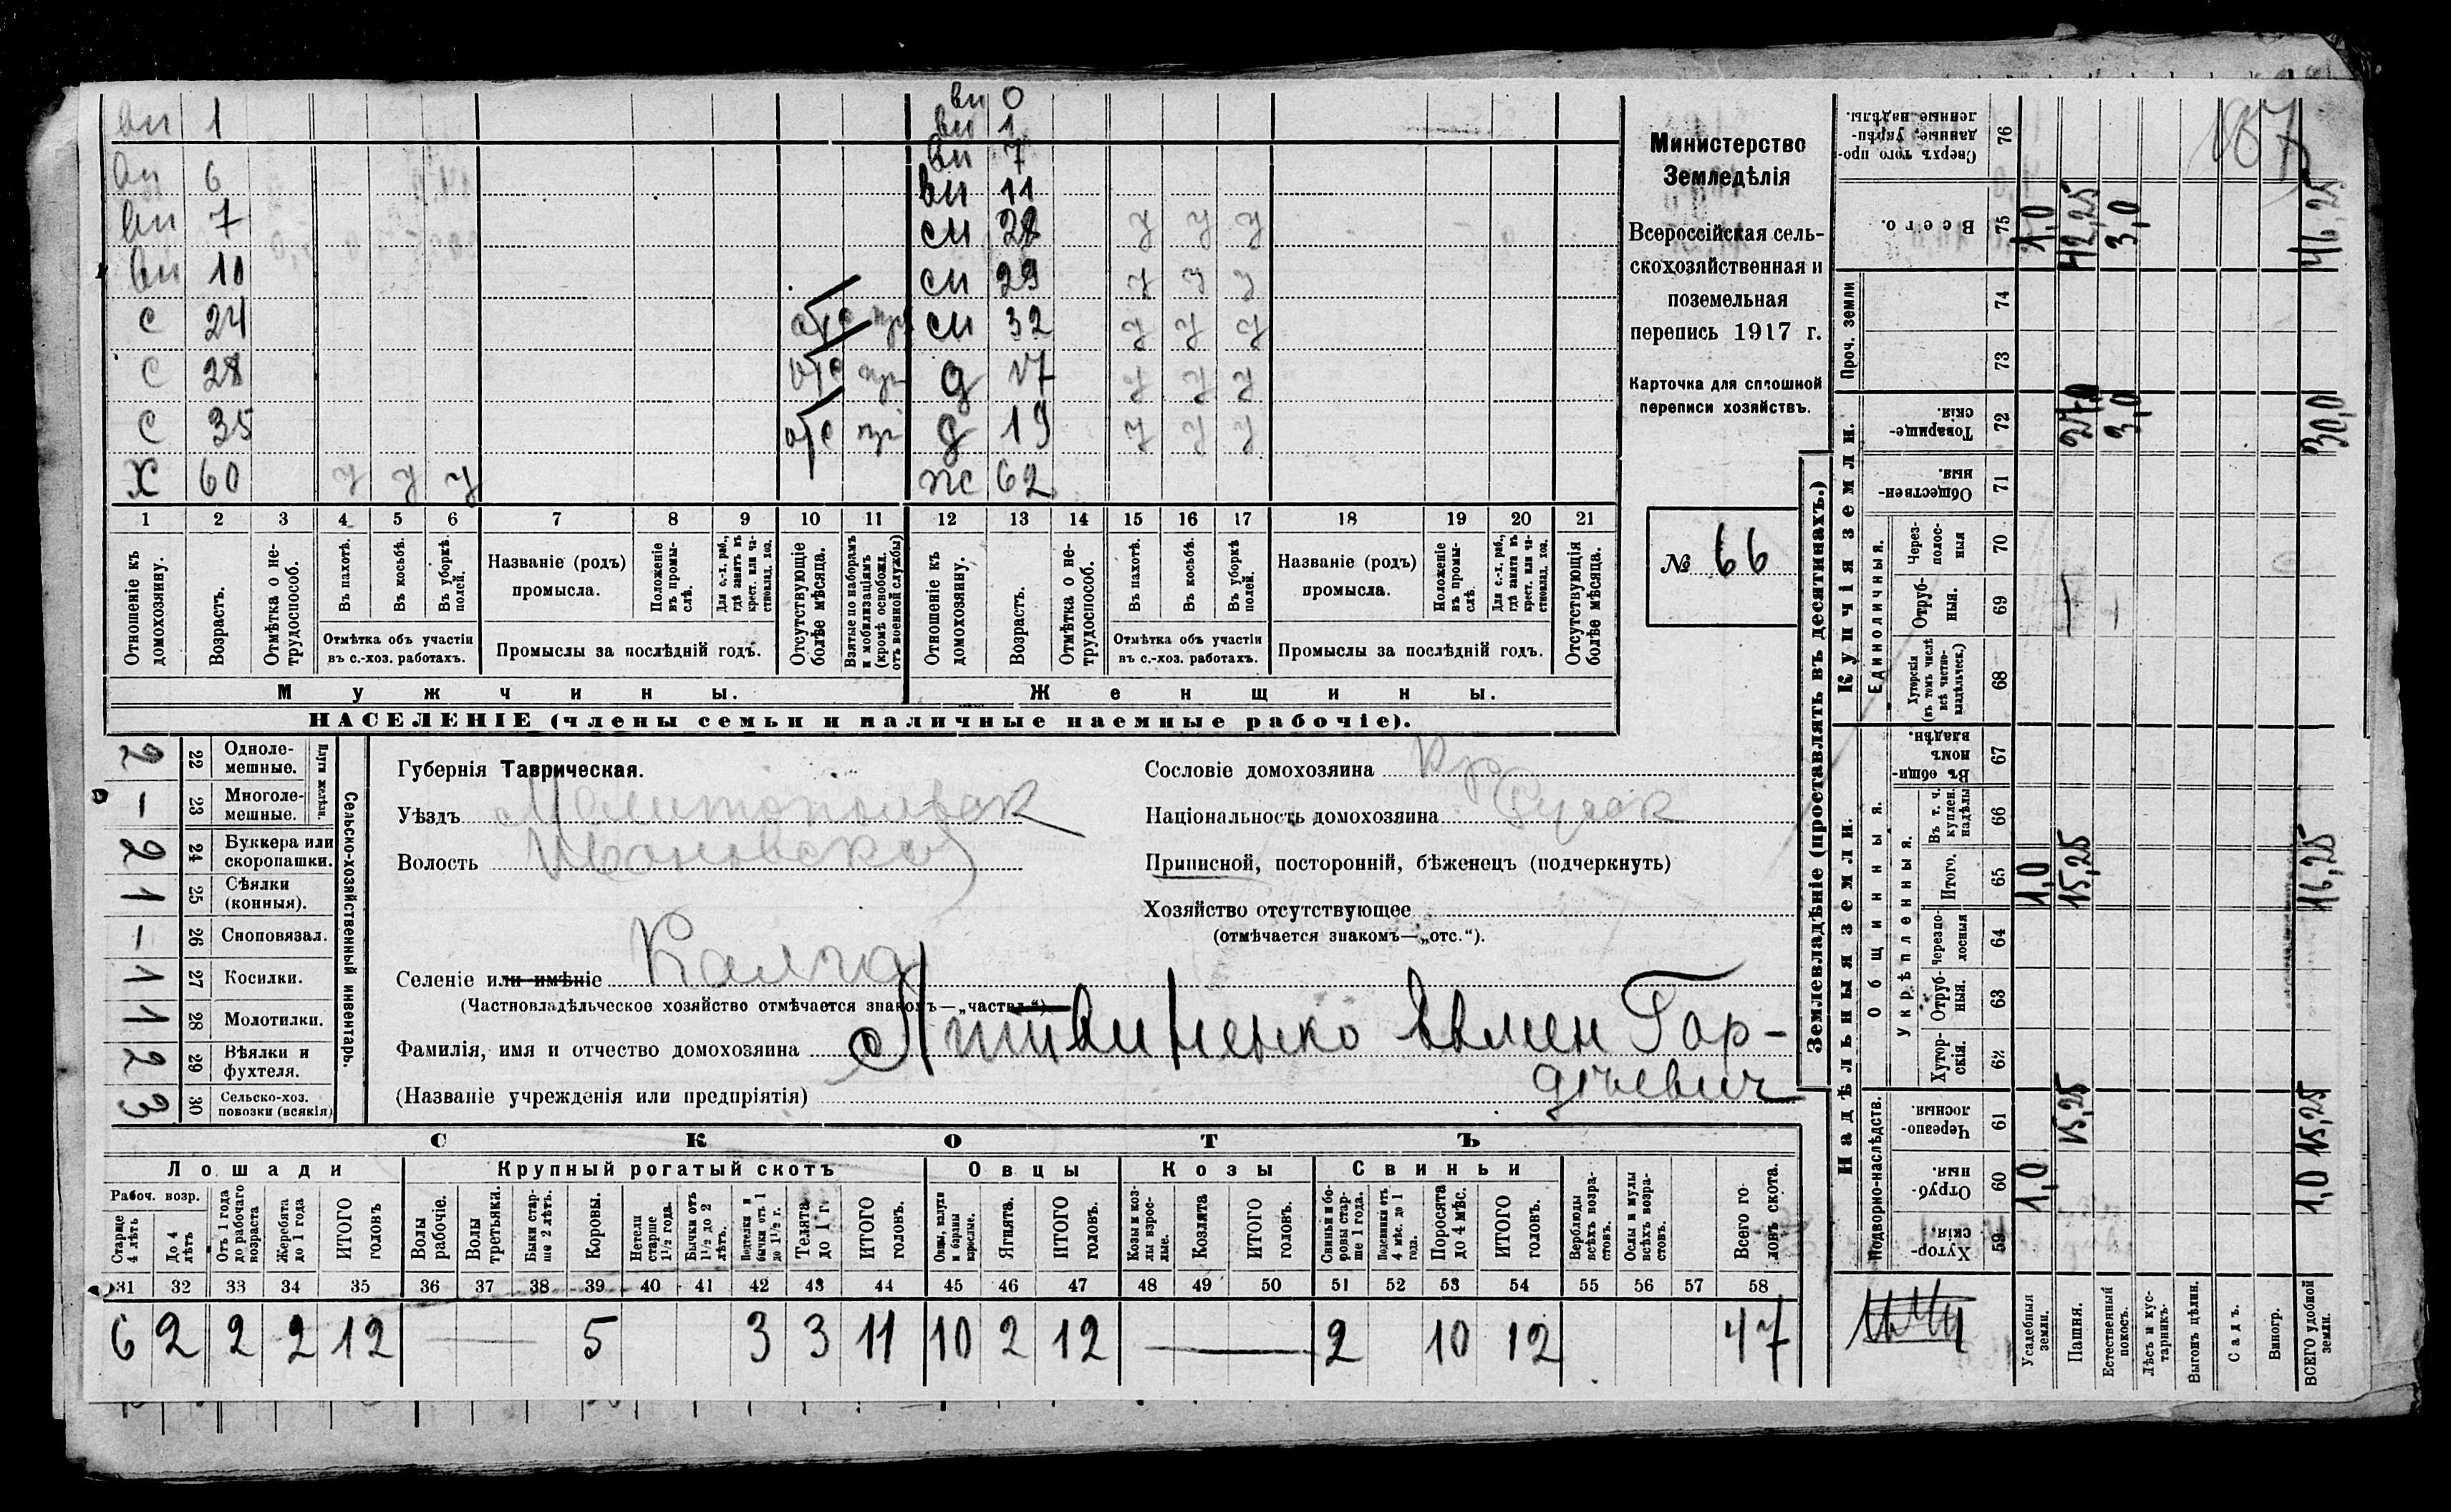 вн 1
вн 6
вн 7
вн 10
с 24 отс
с 28 отс
с 35 отс
Х 60 у у у
вн 0
вн 1
вн 7
вн 11
сн 28 у у у
сн 29 у у у
сн 32 у у у
д 17 у у у
д 19 у у у
жс 62
1 2 3 4 5 6 7 8 9 10 11 12 13 14 15 16 17 18 19 20 21
Отношеніе къ домохозяину.
Возрастъ.
Отмѣтка о не-трудоспособ.
Въ пахотѣ.
Въ косьбѣ.
Въ уборкѣ полей.
Отмѣтка объ участіи въ с.-хоз. работахъ.
Названіе (родъ) промысла.
Положеніе въ промы-слѣ.
Для с.-х. раб., гдѣ занятъ въ крест. или ча-стновлад. хоз.
Промыслы за послѣдній годъ.
Отсутствующіе болѣе мѣсяца.
Взятые по наборамъ и мобилизаціямъ (кромѣ освобожд. отъ военной службы)
Отношеніе къ домохозяину.
Возрастъ.
Отмѣтка о не-трудоспособ.
Въ пахотѣ.
Въ косьбѣ.
Въ уборкѣ полей.
Отмѣтка объ участіи въ с.-хоз. работахъ.
Названіе (родъ) промысла.
Положеніе въ промы-слѣ.
Для с.-х. раб., гдѣ занятъ въ крест. или ча-стновлад. хоз.
Промыслы за послѣдній годъ.
Отсутствующія болѣе мѣсяца.
Мужчины. Женщины.
НАСЕЛЕНІЕ (члены семьи и наличные наемные рабочіе).
Министерство
Земледѣлія
Всероссійская сель-
скохозяйственная и
поземельная
перепись 1917 г.
Карточка для сплошной
переписи хозяйствъ.
№ 66
Сельско-хозяйственный инвентарь.
Плуги желѣзн.
2 22 Одноле-мешные.
— 23 Многоле-мешные.
2 24 Буккера или скоропашки.
1 25 Сѣялки (конныя).
— 26 Сноповязал.
1 27 Косилки.
1 28 Молотилки.
2 29 Вѣялки и фухтеля.
3 30 Сельско-хоз. повозки (всякія)
Губернія Таврическая.
Уѣздъ
Волость Ивановска
Селеніе или имѣніе Калга
(Частновладѣльческое хозяйство отмѣчается знакомъ—„частвл.“)
Фамилія, имя и отчество домохозяина Литвиненко Евмен Гор-
діевич
(Названіе учрежденія или предпріятія)
Сословіе домохозяина Кр
Національность домохозяина Русск
Приписной, посторонній, бѣженецъ (подчеркнуть)
Хозяйство отсутствующее
(отмѣчается знакомъ—„отс.“).
СКОТЪ
Лошади Крупный рогатый скотъ Овцы Козы Свиньи
Рабоч. возр.
Старше 4 лѣтъ
До 4 лѣтъ
Отъ 1 года до рабочаго возраста
Жеребята до 1 года
ИТОГО головъ
Волы рабочіе.
Волы третьяки.
Быки стар-ше 2 лѣтъ.
Коровы.
Нетели старше 1½ года.
Бычки отъ 1½ до 2 лѣтъ.
Подтелки и бычки отъ 1 до 1½ г.
Телята до 1 г.
ИТОГО головъ.
Овцы, валухи и бараны взрослые.
Ягнята.
ИТОГО головъ.
Козы и коз-лы взрос-лые.
Козлята
ИТОГО головъ.
Свиньи и бо-ровы стар-ше 1 года.
Подсвинки отъ 4 мѣс. до 1 года.
Поросята до 4 мѣс.
ИТОГО головъ.
Верблюды всѣхъ возра-стовъ.
Ослы и мулы всѣхъ возра-стовъ.
Всего го-ловъ скота.
31 32 33 34 35 36 37 38 39 40 41 42 43 44 45 46 47 48 49 50 51 52 53 54 55 56 57 58
6 2 2 2 12 — 5 3 3 11 10 2 12 — 2 10 12 47
187
Землевладѣніе (проставлять въ десятинахъ.)
Надѣльныя земли.
Купчія земли.
Проч. земли
Подворно-наслѣдств.
Общинныя.
Укрѣпленныя.
Единоличныя.
Хутор-скія. 59
Отруб-ныя. 60
Черезпо-лосныя. 61
Хутор-скія. 62
Отруб-ныя. 63
Черезпо-лосныя 64
Итого. 65
Въ т. ч. куплен. надѣлы 66
Въ общи-номъ владѣн. 67
Хуторскія (въ томъ числѣ всѣ частно-владѣльческ.) 68
Отруб-ныя. 69
Через-полос-ныя 70
Обществен-ныя. 71
Товарище-скія. 72
73
74
Всего. 75
Сверхъ того про-данные, укрѣп-ленные надѣлы. 76
Усадебныя земли. 1,0 1,0 1,0
Пашня. 15,25 15,25 — 27,0 42,25
Естественный покосъ. — 3,0 3,0
Лѣсъ и кус-тарникъ.
Выгонъ цѣлин.
Садъ.
Виногр.
ВСЕГО удобной земли. 1,0 15,25 16,25 30,0 46,25